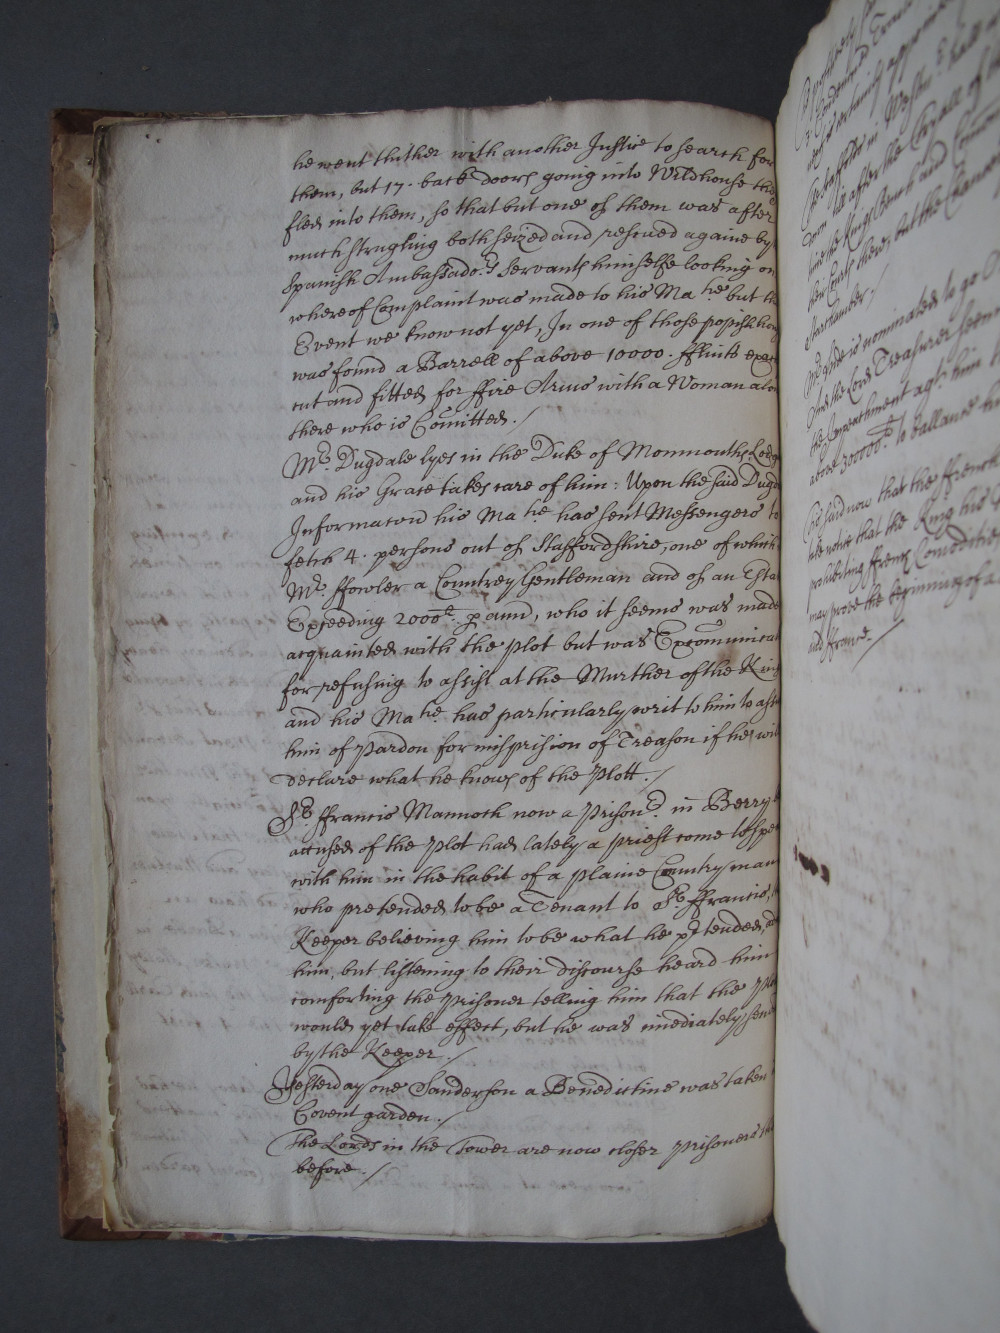 he went thither with another Justice to search for
them, but 17. back doors going into Wildhouse they
fled into them, so that but one of them was after
much strugling both seized and rescued againe by
Spanish Ambassado:rs Servants himselfe looking on
whereof Complaint was made to his Ma:tie but the
Event we know not yet, In one of those popish hou
was found a Barrell of above 10000. fflints exac
cut and fitted for ffire Arms with a Woman alon
there who is Comitted. /
Mr. Dugdale lyes in the Duke of Monmouths Lodg
and his Grace takes care of him: Upon the said Dugd
Informacon his Ma:tie has sent Messengers to
fetch 4. persons out of Staffordshire, one of which
Mr. ffowler a Countrey Gentleman and of an Esta
Exceeding 2000:l: p ann, who it seems was made
acquainted with the plot but was Excommunicat
for refusing to assist at the Murther of the King
and his Ma:tie has particularly writ to him to ass
him of Pardon for misprision of Treason if he will
declare what he knows of the Plott. /
Sr. ffrancis Mannock now a Prison:r in Berry
accused of the Plot had lately a priest come to spea
with him in the habit of a plaine Country man
who pretended to be a Tenant to Sr. ffrancis,
Keeper believing him to be what he prtended, ad
him, but listening to their discourse heard him
comforting the Prisoner telling him that the Plo
would yet take effect, but he was imediately
by the Keeper. /
Yesterday one Sanderson a Benedictine was taken
Covent garden. /
The Lords in the Tower are now closer Prisoners
before. /
Mr. is nominated to go
And the Lord Treasurer seem
the Impeachment agt. him
above 300000:l: to ballance
Tis said now that the ffrench
take notice that the King his
prohibiting ffrench Comodities
may prove the beginning of a
and ffrance. /